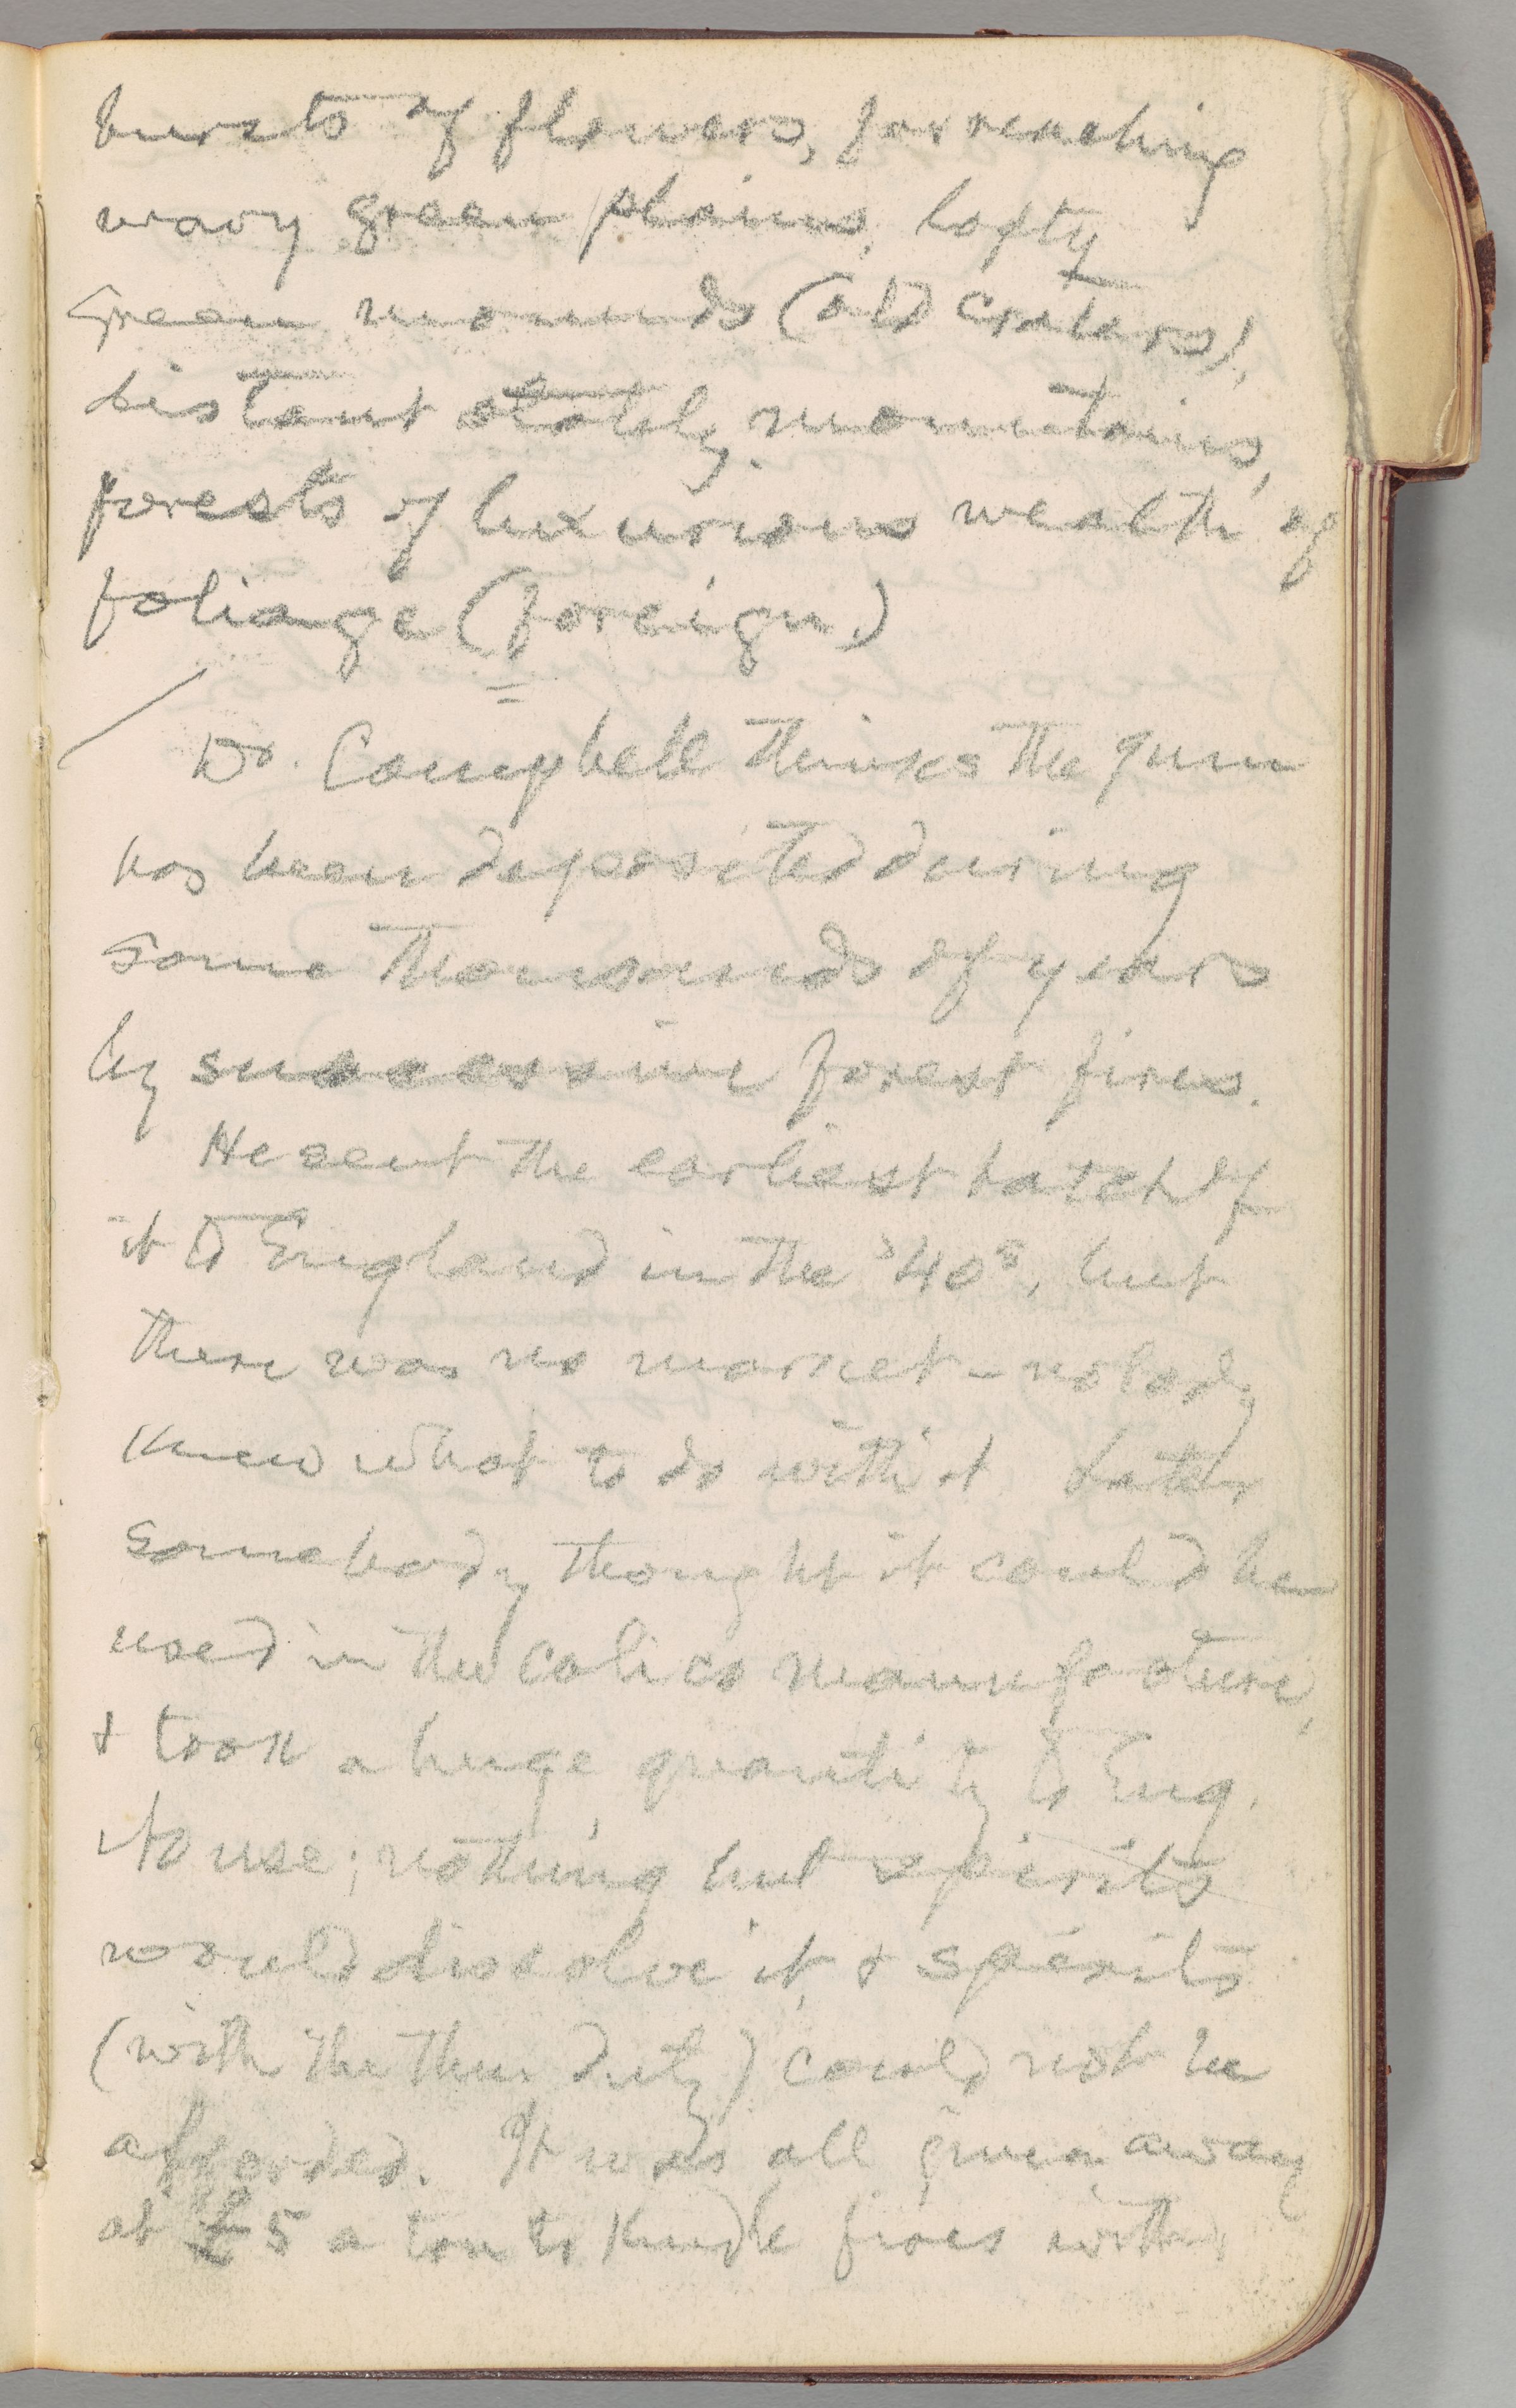 bursts of flowers, far reaching
wavy green plains, lofty
green mounds (old craters),
distant stately mountains,
forests of luxurious wealth of
foliange (foreign.)
=
Dr. Campbell thinks the gum
has been deposited during
some thousands of years
by successive forest fires.
He sent the earliest batch of
it to England in the '40s, but
there was no market – nobody
knew what to do with it. Later
somebody thought it could be
used in the calico manufacture,
& took a huge quantity to Eng.
No use; nothing but spirits
would dissolve it, & spirits
(with the then duty) could not be
afforded. It was all given away
at £5 a ton to kindle fires with